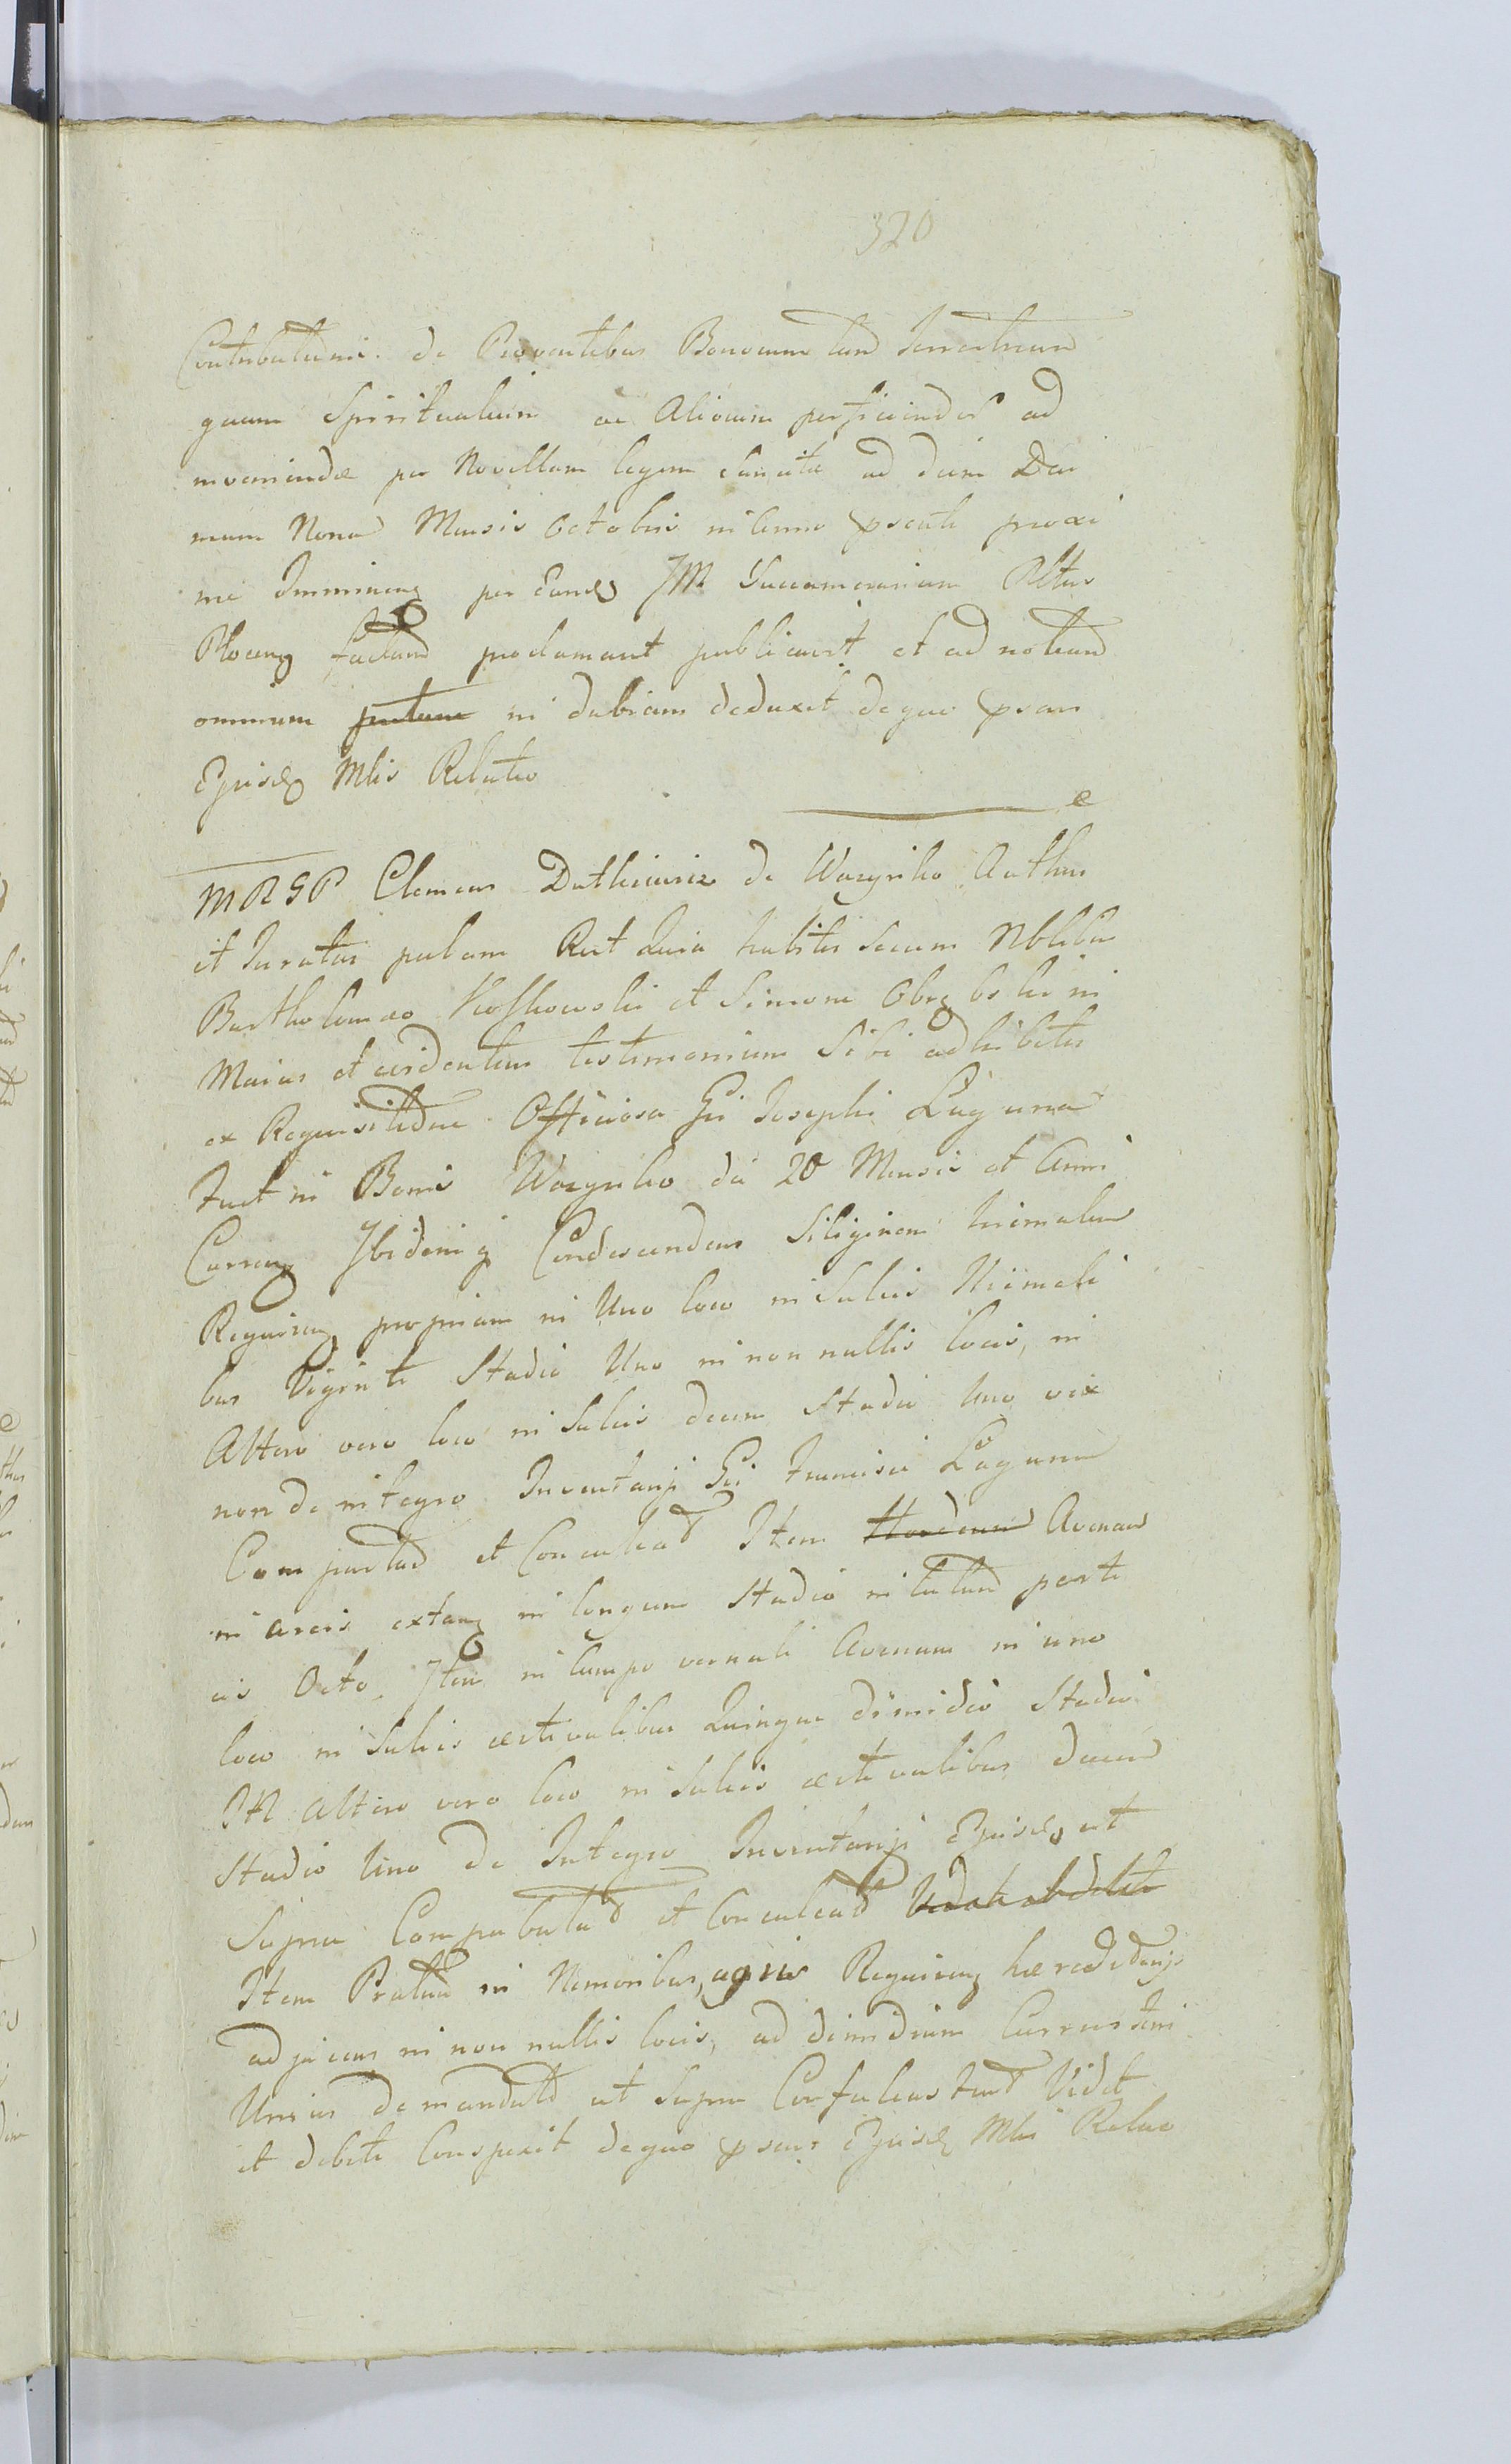 320
Contributium. de Proventibus Bonorum tam Terrestrium
quam Spiritualium ac Aliorum perficiendis ad
inveniendae per Novellam legem Sancitae ad diem Deci
mum Nona Mensis Octobris in Anno psenti proxi
me Imminen per Eund JM Succamerarium Pltus
Plocen faciend proclamavit publicavit et ad notitiam
omnium in dubiam deduxit de quo psens
Ejusd Mlis Relatio
MRGP Clemens Dutkiewicz de Wozniko Authus
et Juratus palam Rect Quia habitis Secum Nblibus
Bartholomaeo et Simone in
Maius et evidentius testimonium Sibi adhibitis
ex Requisitione Officiosa Gi Josephi Laguna
Fuit in Bonis Wozniko die 20 Mensis et Anni
Curren Ibidemq Condescendens Siliginem hiemalem
Requiren propriam in Uno loco in Sulcis Hiemali
bus Viginti Stadio Uno in non nullis locis, in
Altero vero loco in Sulcis decem Stadio Uno vix
non de integro Inventarij Gi Francisci Laguna
Compastam et Conculcat Item Hordeum Avenam
in areis extan in longum Stadio in latum parti
cis Octo. Item in Campo vernali Avenam in uno
loco in Sulcis aestivalibus Quinque dimidio Stadio
IN altero vero loco in Sulcis aestivalibus decem
Stadio Uno de Integro Inventarij Ejusd ut
Supra Compabulat et Conculcat
Item Pratum in Nemoribus, agris Requiren haereditarijs
adjacens in non nullis locis, ad dimidium Currus foeni
Unius demandato ut Supra Vidit
et debite Conspexit de quo psens Ejusd Mlis Relao